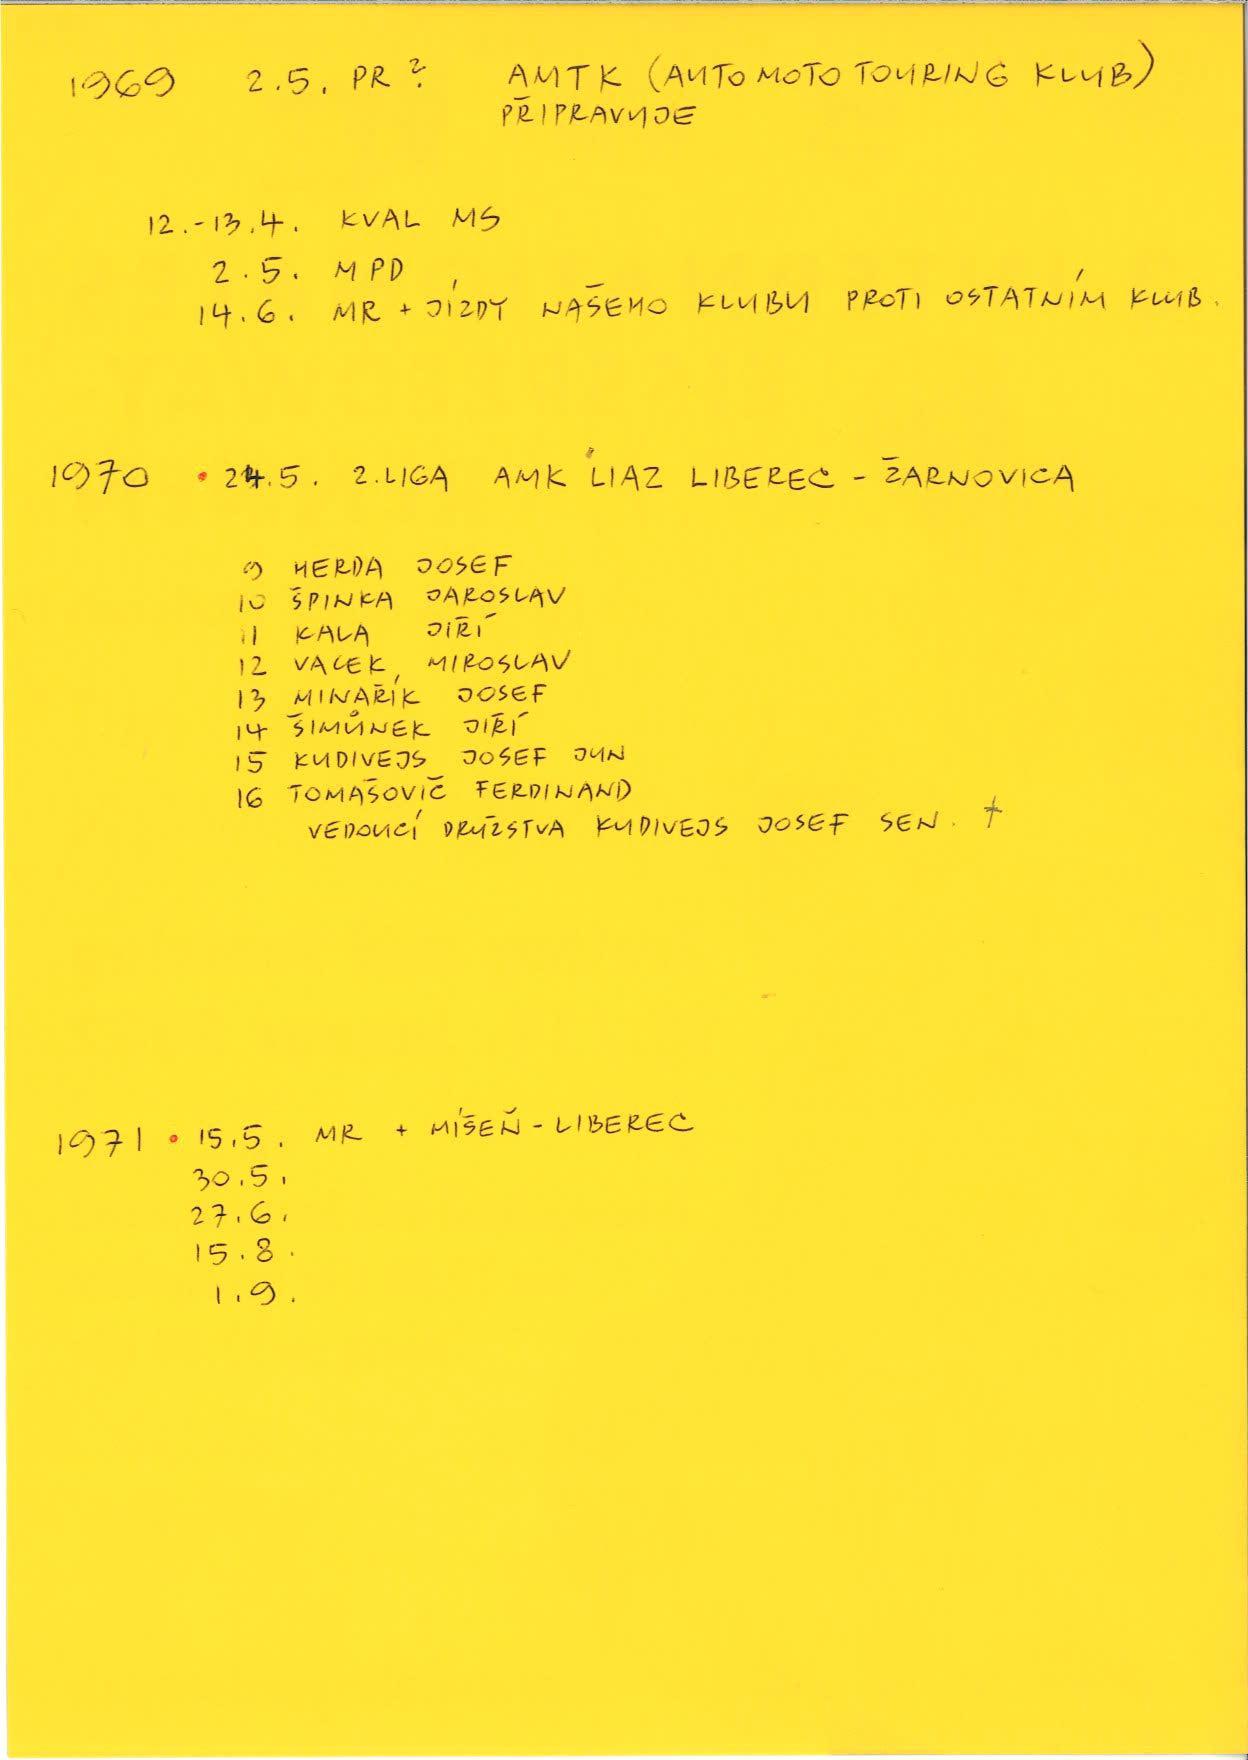 1969 2.5. PR? AMTK (AUTO MOTO TOURING KLUB)
PŘIPRAVUJE
12.-13.4. KVAL MS
2.5. MPD
14.6. MR + JÍZDY NAŠEHO KLUBU PROTI OSTATNÍM KLUB.
1970 • 24.5. 2.LIGA AMK LIAZ LIBEREC - ŽARNOVICA
9 HERDA JOSEF
10 ŠPINKA JAROSLAV
11 KALA JIŘÍ
12 VACEK MIROSLAV
13 MINAŘÍK JOSEF
14 ŠIMŮNEK JIŘÍ
15 KUDIVEJS JOSEF JUN
16 TOMAŠOVIČ FERDINAND
VEDOUCÍ DRUŽSTVA KUDIVEJS JOSEF SEN. †
1971 • 15.5. MR + MÍŠEŇ - LIBEREC
30.5.
27.6.
15.8.
1.9.